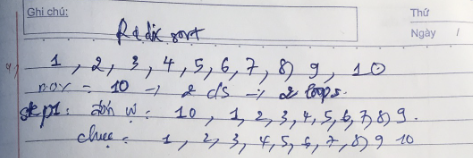 Ghi chú:
Thứ
Ngày /
Radix sort
4, 1, 2, 3, 4, 5, 6, 7, 8, 9, 10
max = 10 → 2 c/s → 2 loops.
step1: đơn vị: 10, 1, 2, 3, 4, 5, 6, 7, 8, 9.
chục = 1, 2, 3, 4, 5, 6, 7, 8, 9 10